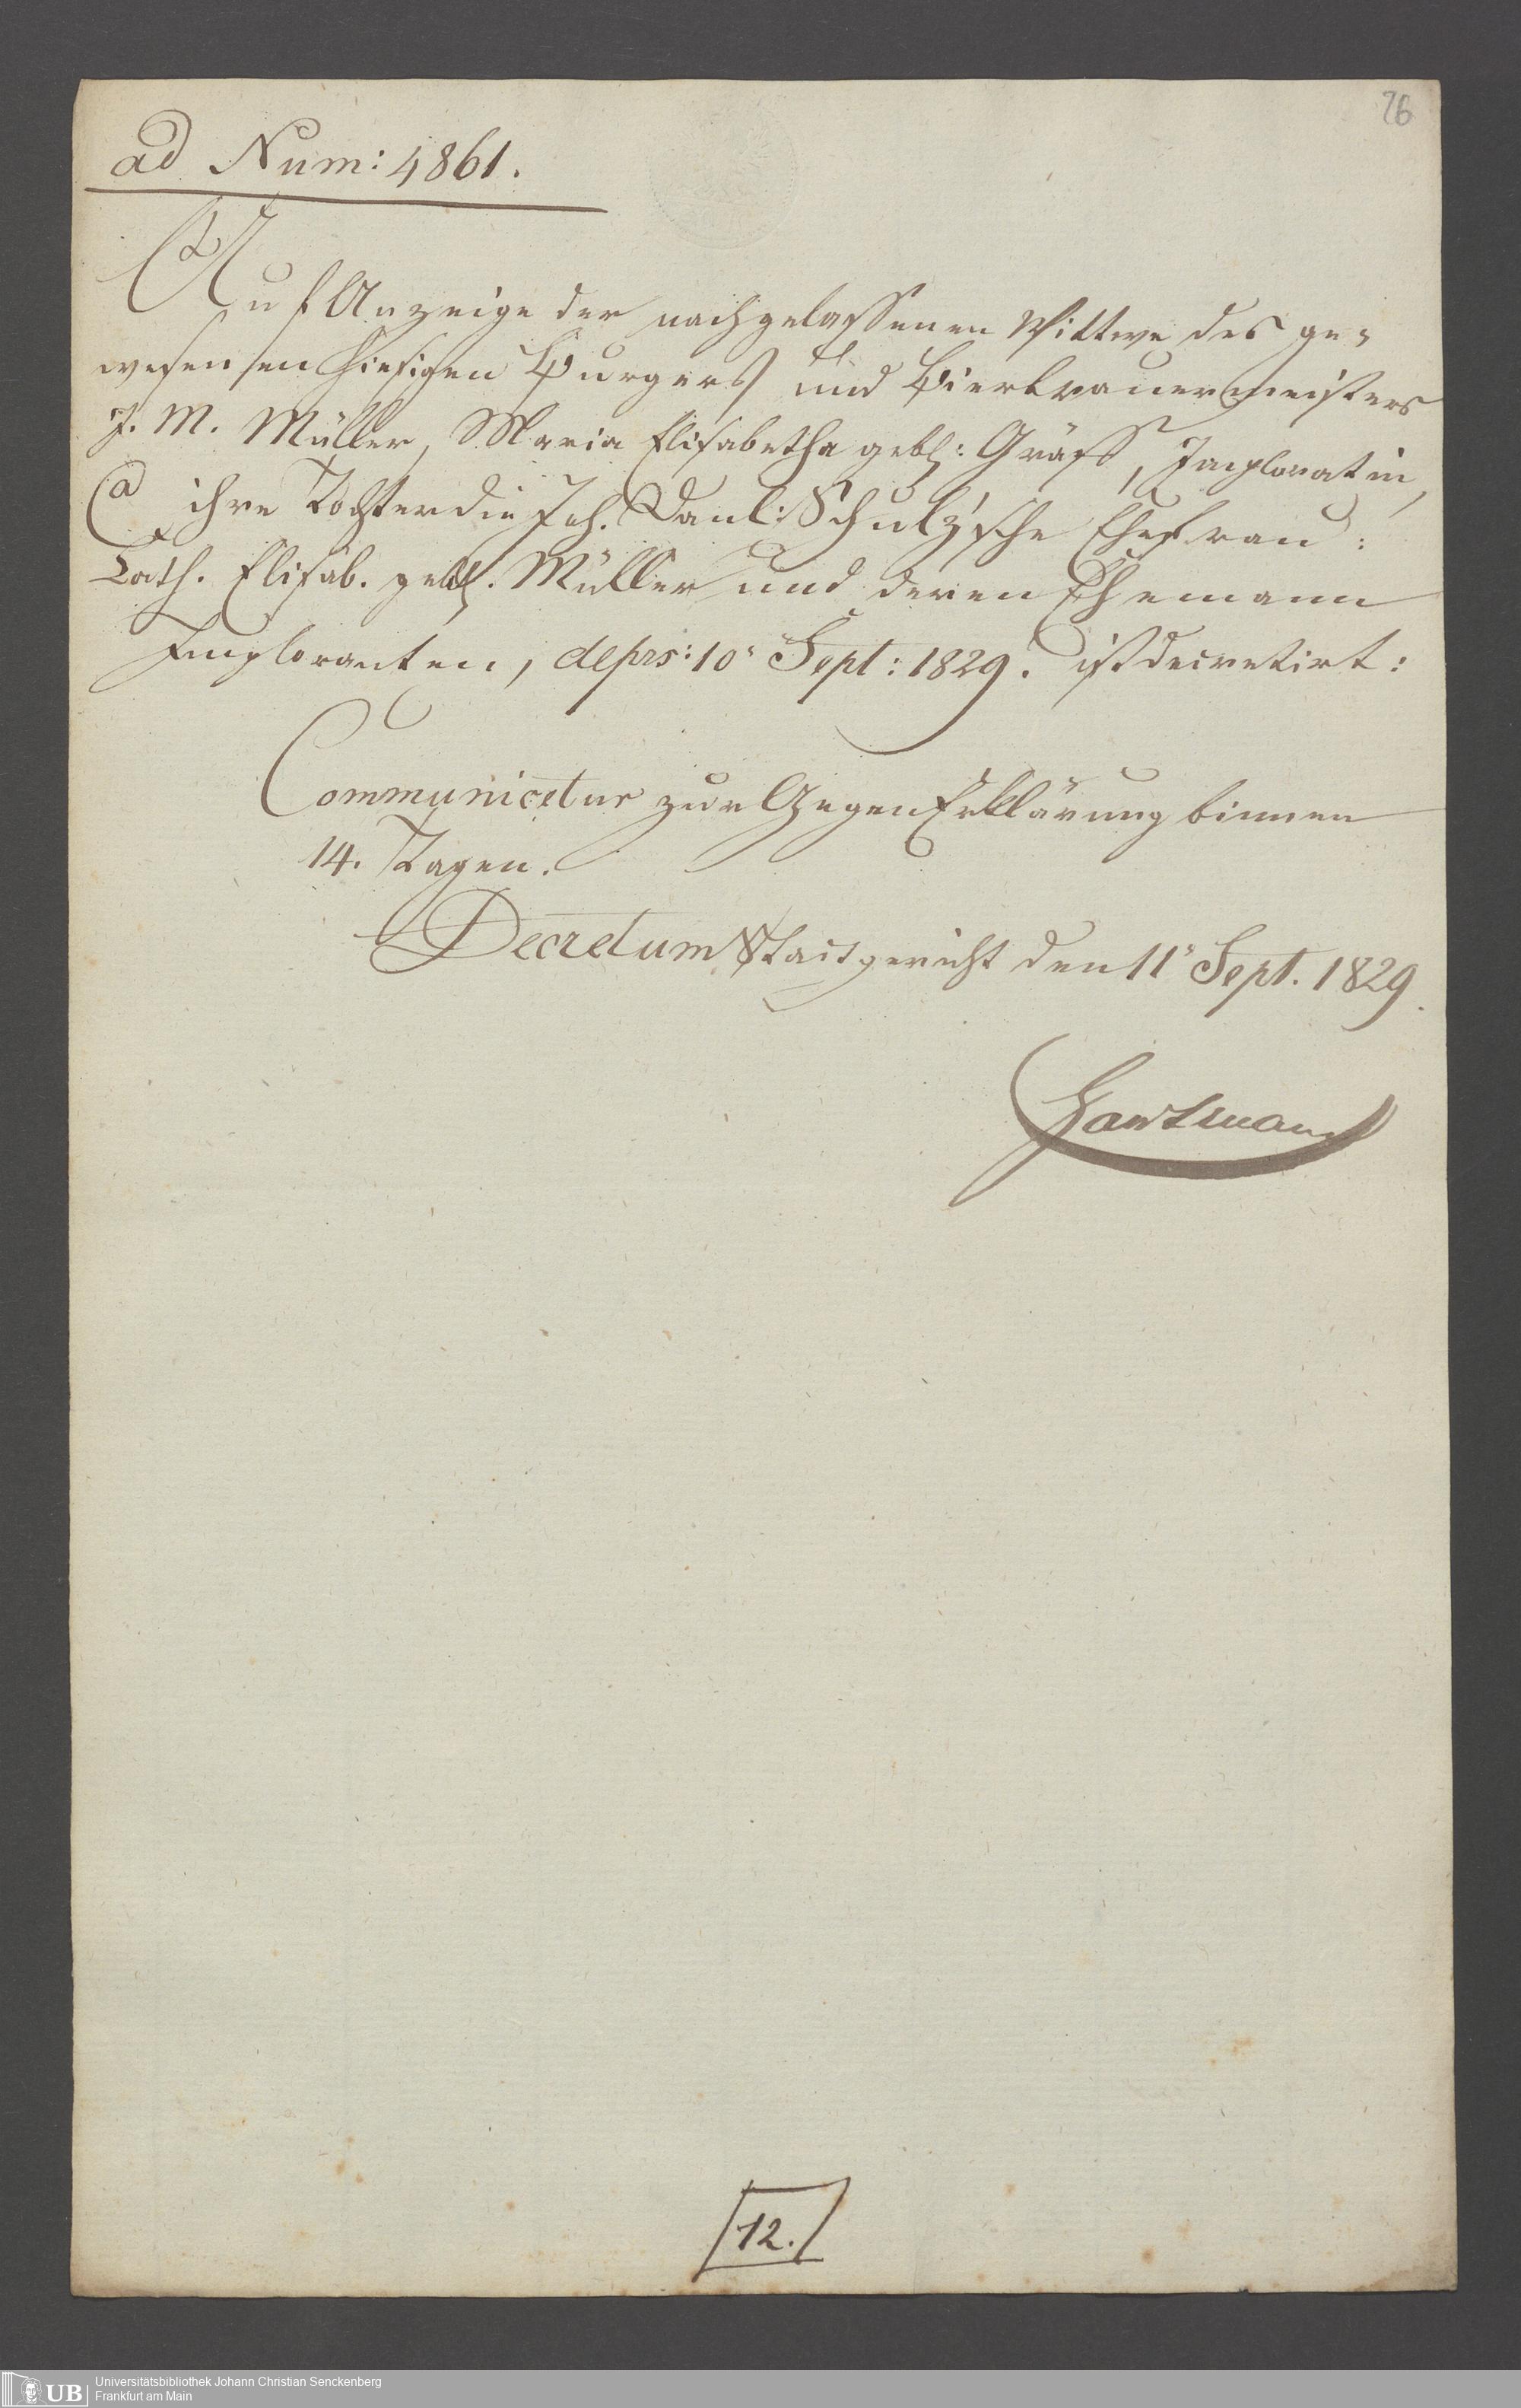 76
ad Num: 4861.
Auf Anzeige der nachgelassenen Wittwe des ge-
wesenen hiesigen Burgers und Bierbrauermeisters
J. M. Müller, Maria Elisabetha gebh: Gräff, Imploratin,
Ca ihre Tochter die Joh. Danl: Schulz'sche Ehefrau:
Cath. Elisab. gebh. Müller und deren Ehemann
Imploranten, de prs: 10. Sept: 1829. ist decretirt:
Communicetur zur GegenErklärung binnen
14. Tagen.
Decretum Stadtgericht den 11. Sept. 1829.
Hartmann
12.
UB Universitätsbibliothek Johann Christian Senckenberg
Frankfurt am Main